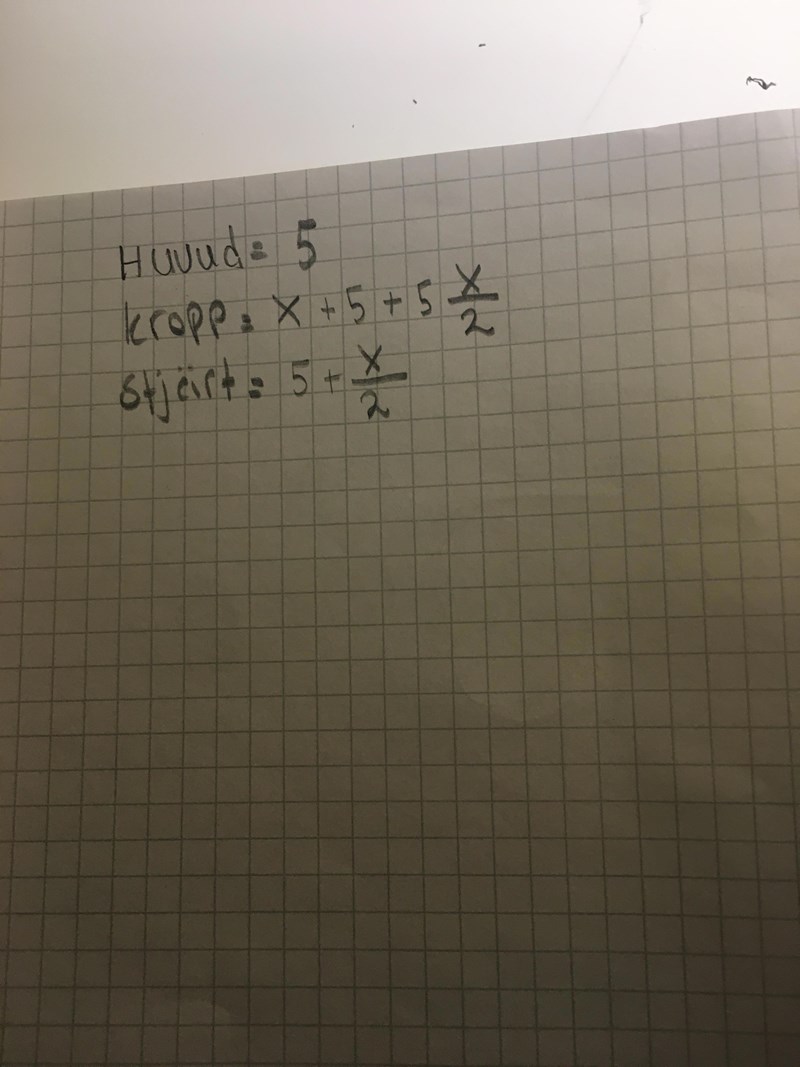 Huvud = 5
kropp = x + 5 + 5 x/2
stjärt = 5 + x/2